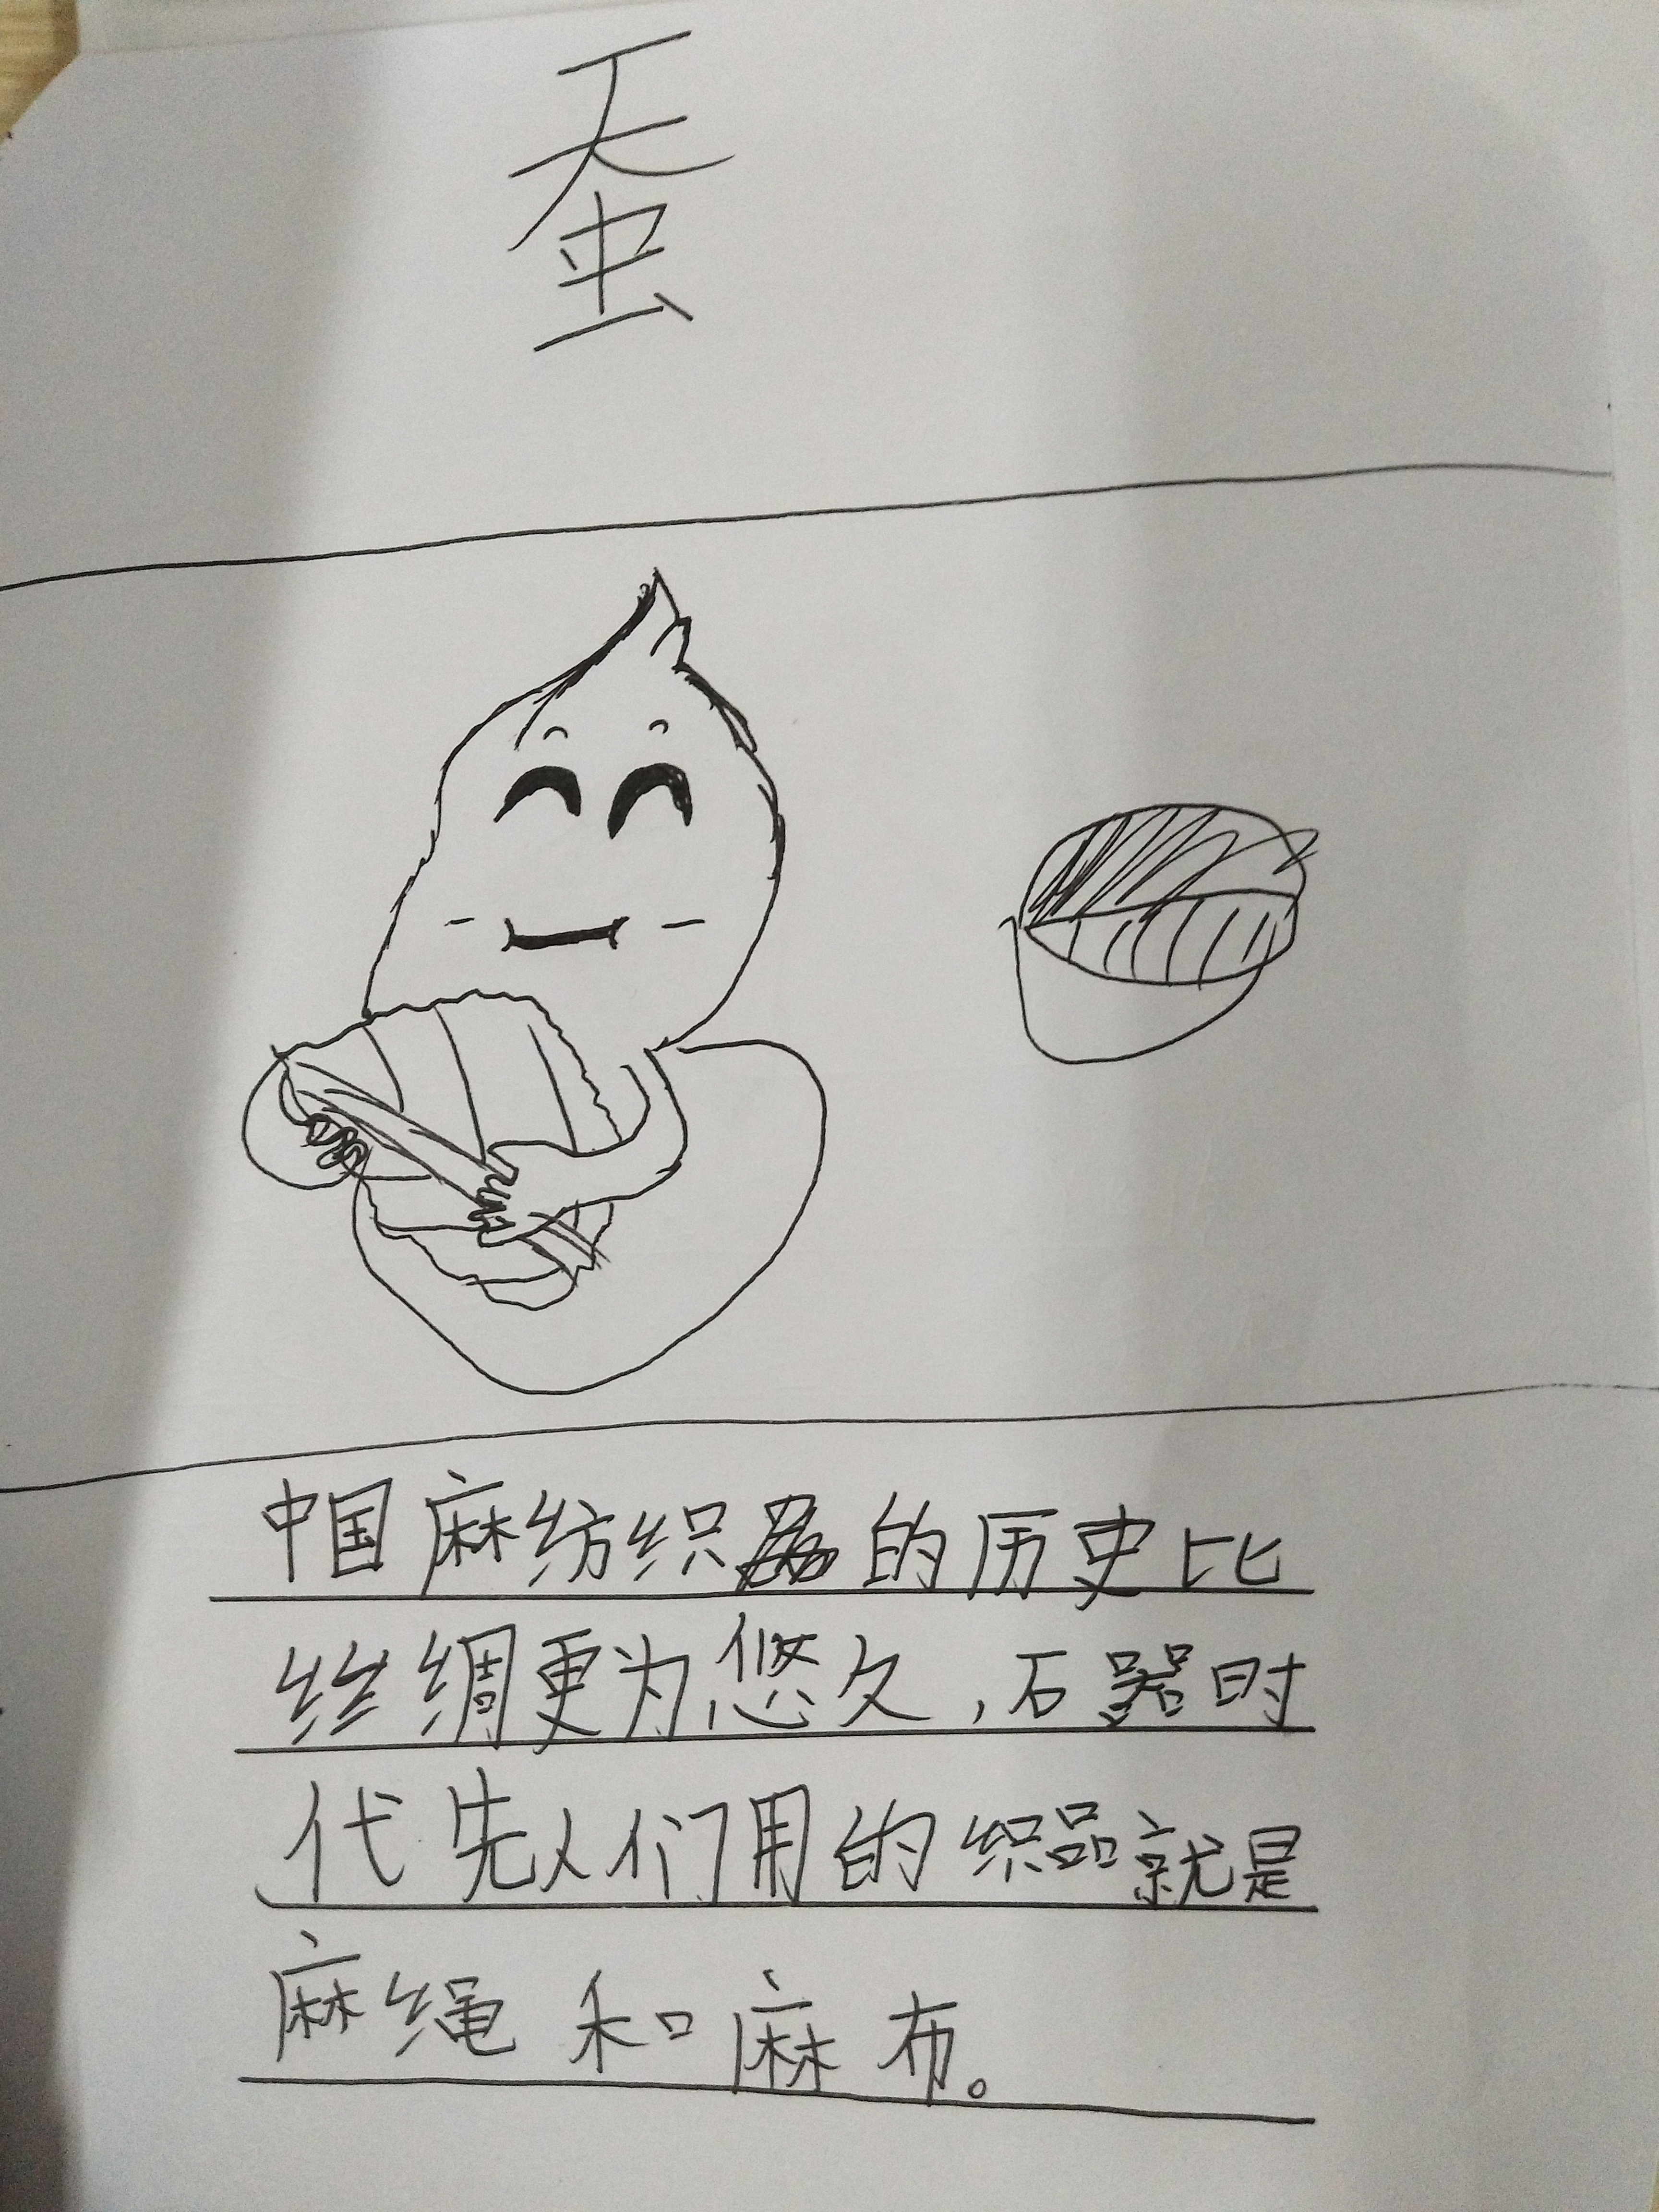 蚕
中国麻纺织的历史比
丝绸更为悠久,石器时
代先人们用的织品就是
麻绳和麻布。